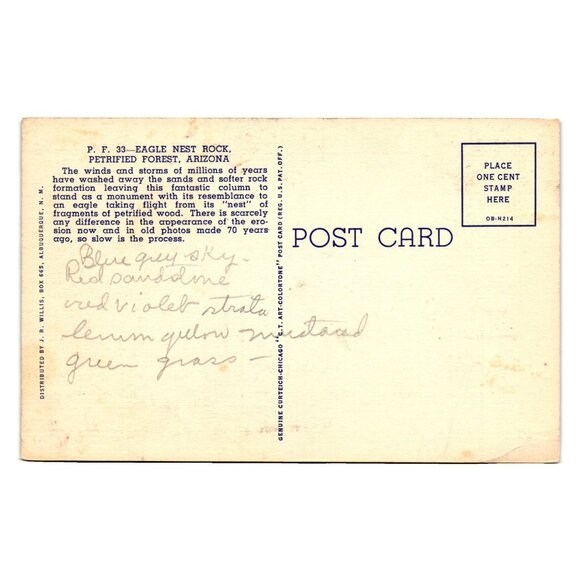 P. F. 33—EAGLE NEST ROCK,
PETRIFIED FOREST, ARIZONA
The winds and storms of millions of years
have washed away the sands and softer rock
formation leaving this fantastic column to
stand as a monument with its resemblance to
an eagle taking flight from its "nest" of
fragments of petrified wood. There is scarcely
any difference in the appearance of the ero-
sion now and in old photos made 70 years
ago, so slow is the process.
Blue grey sky-
Red sandstone
red violet strata
lemon yellow mustard
green grass —
DISTRIBUTED BY J. R. WILLIS, BOX 665, ALBUQUERQUE, N. M.
GENUINE CURTEICH-CHICAGO "C.T. ART-COLORTONE" POST CARD (REG. U.S. PAT. OFF.)
POST CARD
PLACE
ONE CENT
STAMP
HERE
OB-H214